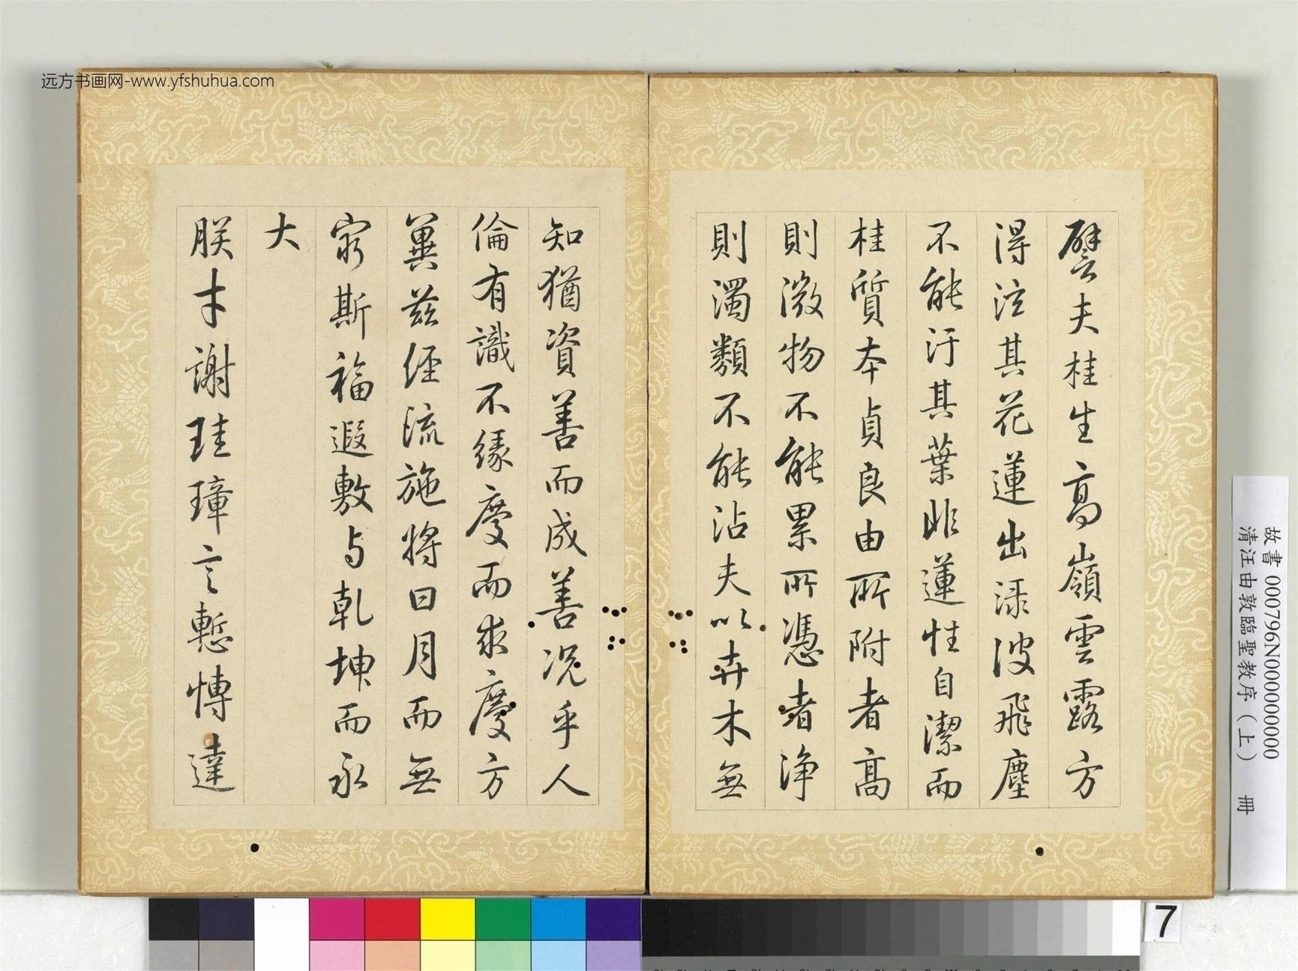 远方书画网-www.yfshuhua.com
譬夫桂生高嶺雲露方
得泫其花蓮出淥波飛塵
不能汙其葉非蓮性自潔而
桂質本貞良由所附者高
則微物不能累所憑者淨
則濁類不能沾夫以卉木無
知猶資善而成善況乎人
倫有識不緣慶而求慶方
冀茲經流施將日月而無
窮斯福遐敷与乾坤而永
大
朕才謝珪璋言慙博達
故書 000796N000000000
清汪由敦臨聖教序(上) 冊
7